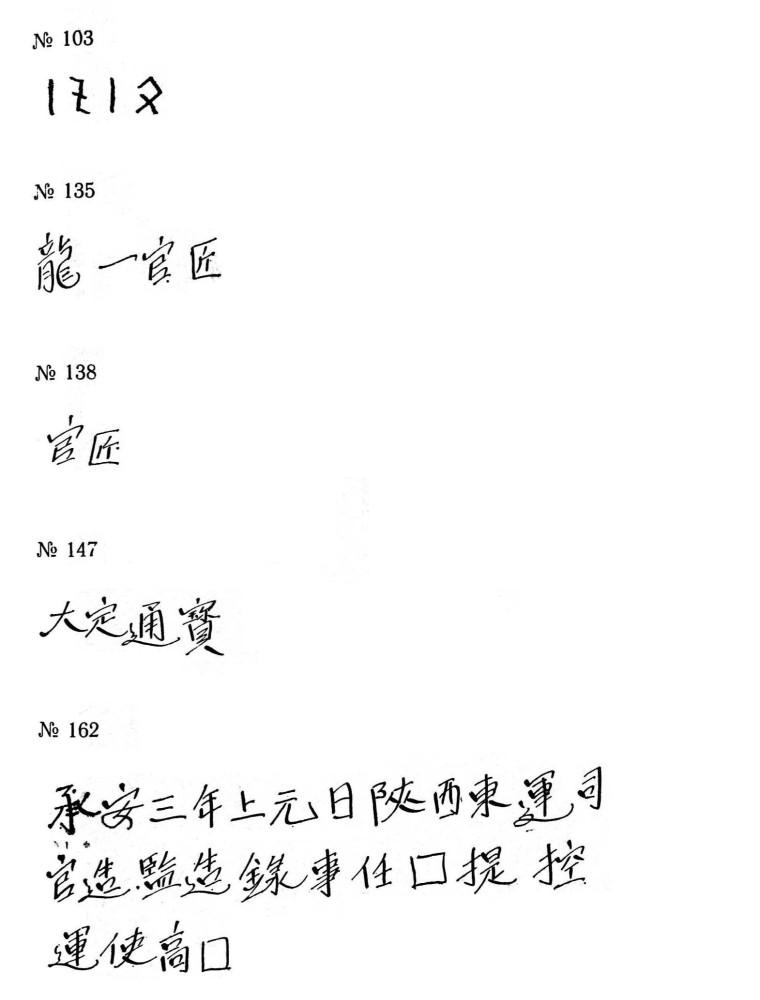 № 103
№ 135
龍一官匠
№ 138
官匠
№ 147
大定通寳
№ 162
承安三年上元日陝西東運司
官造監造錄事任口提控
運使高口